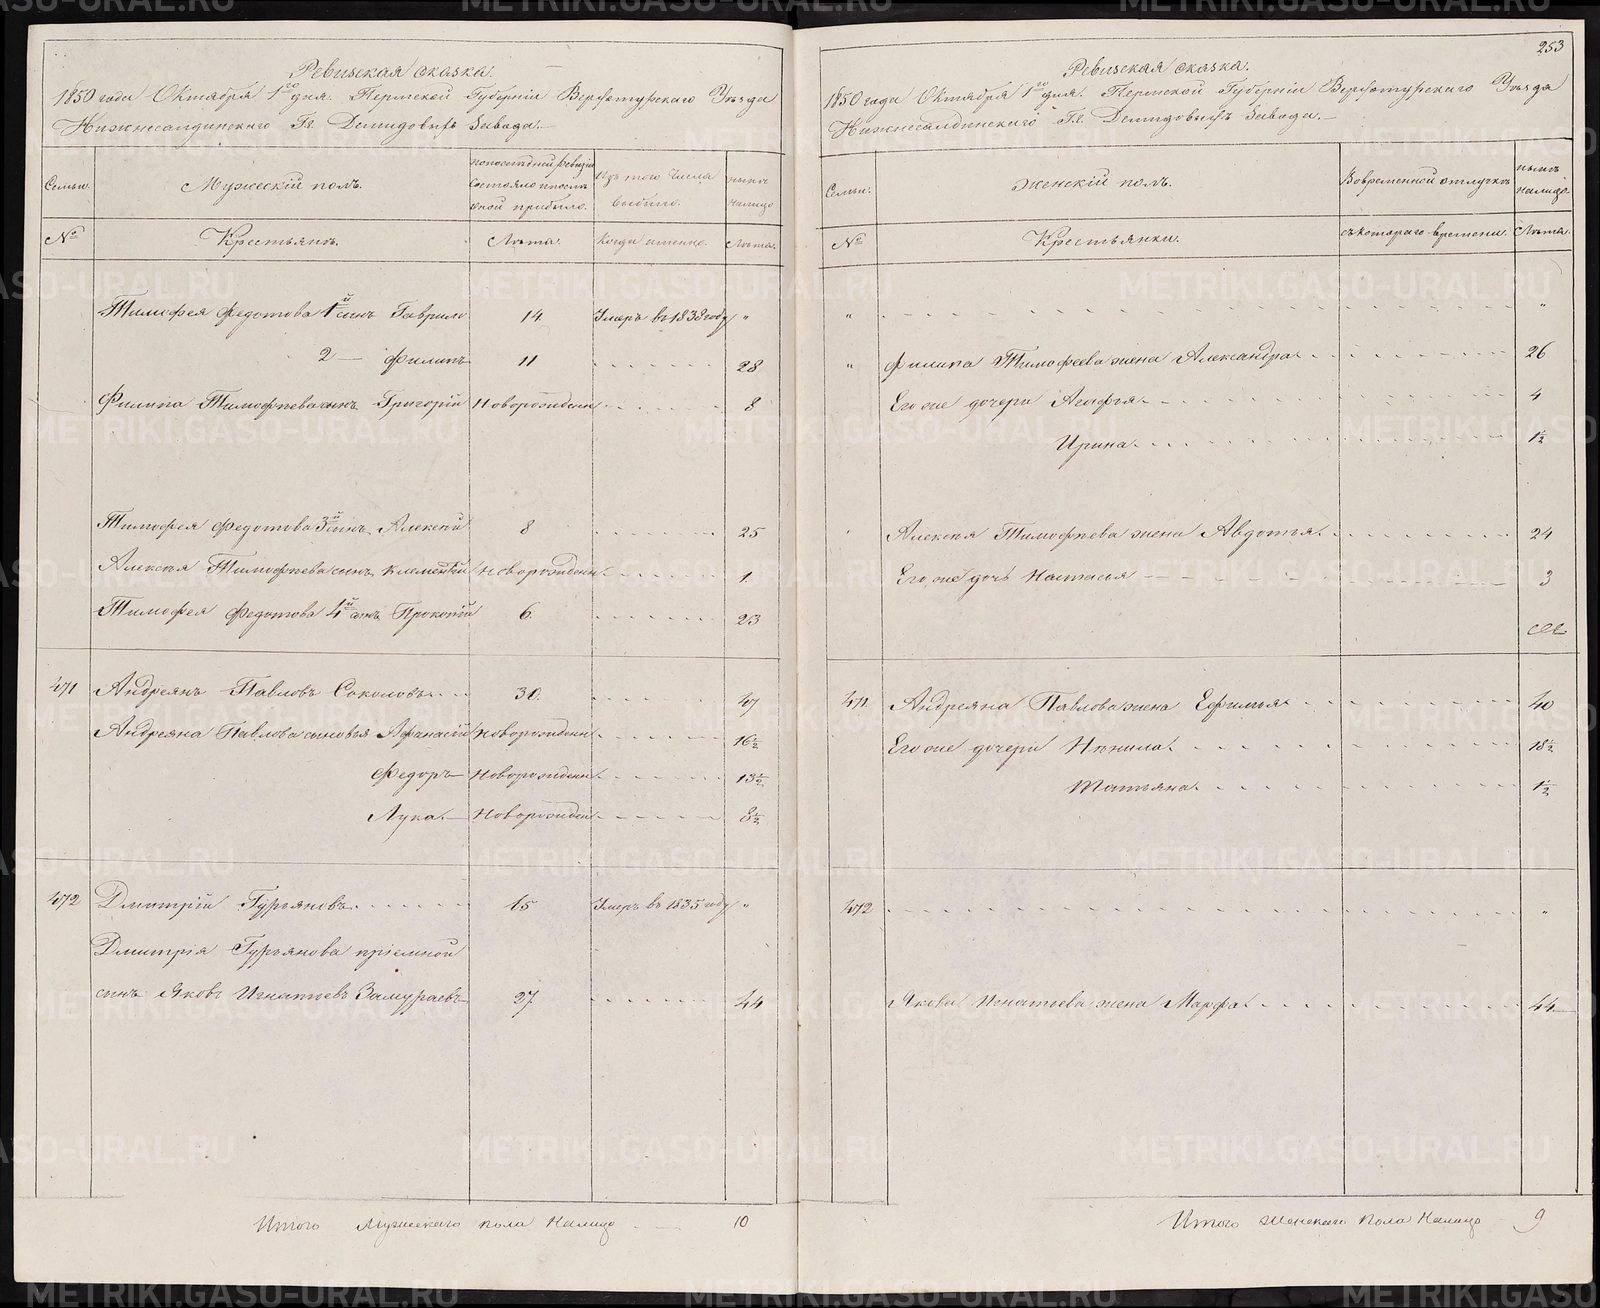 Ревизская сказка.
1850 года Октября 1го дня. Пермской Губернии Верхотурскаго Уезда
Нижнесалдинскаго Гг. Демидовыхъ Завода.
Семьи.
Мужескій полъ.
По последней ревизіи состояло и после оной прибыло.
Изъ того числа выбыло.
Ныне на лицо
№
Крестьянъ.
Лета.
Когда именно.
Лета.
Тимофея Федотова 1й сынъ Гаврило 14 Умеръ въ 1838 году "
2 — Филипъ 11 28
Филипа Тимофеева сынъ Григорій Новорожденъ 8
Тимофея Федотова 3й сынъ Алексей 8 25
Алексея Тимофеева сынъ Клементей Новорожденъ 1
Тимофея Федотова 4й сынъ Прокопій 6. 23
471 Андреянъ Павловъ Соколовъ 30. 47
Андреяна Павлова сыновья Афанасій Новорожденъ 16 1/2
Федоръ Новорожденъ 13 1/2
Лука Новорожденъ 8 1/2
472 Дмитрій Гурьяновъ 65 Умеръ въ 1835 году "
Дмитрія Гурьянова пріемной
сынъ Яковъ Игнатьевъ Замураевъ 27 44
Итого мужескаго пола на лицо 10
253
Ревизская сказка.
1850 года Октября 1го дня. Пермской Губерніи Верхотурскаго Уезда
Нижнесалдинскаго Гг. Демидовыхъ Завода.
Семьи.
Женскій полъ.
Во временной отлучке
Ныне на лицо.
№
Крестьянки.
съ котораго времени.
Лета.
" "
" Филипа Тимофеева жена Александра 26
Его же дочери Агафья 4
Ирина 1 1/2
Алексея Тимофеева жена Авдотья 24
Его же дочь Настасья 3
471 Андреяна Павлова жена Ефимья 40
Его же дочери Ненила 18 1/2
Татьяна 1 1/2
472 "
Якова Игнатьева жена Марфа 44
Итого женскаго пола на лицо 9
METRIKI.GASO-URAL.RU